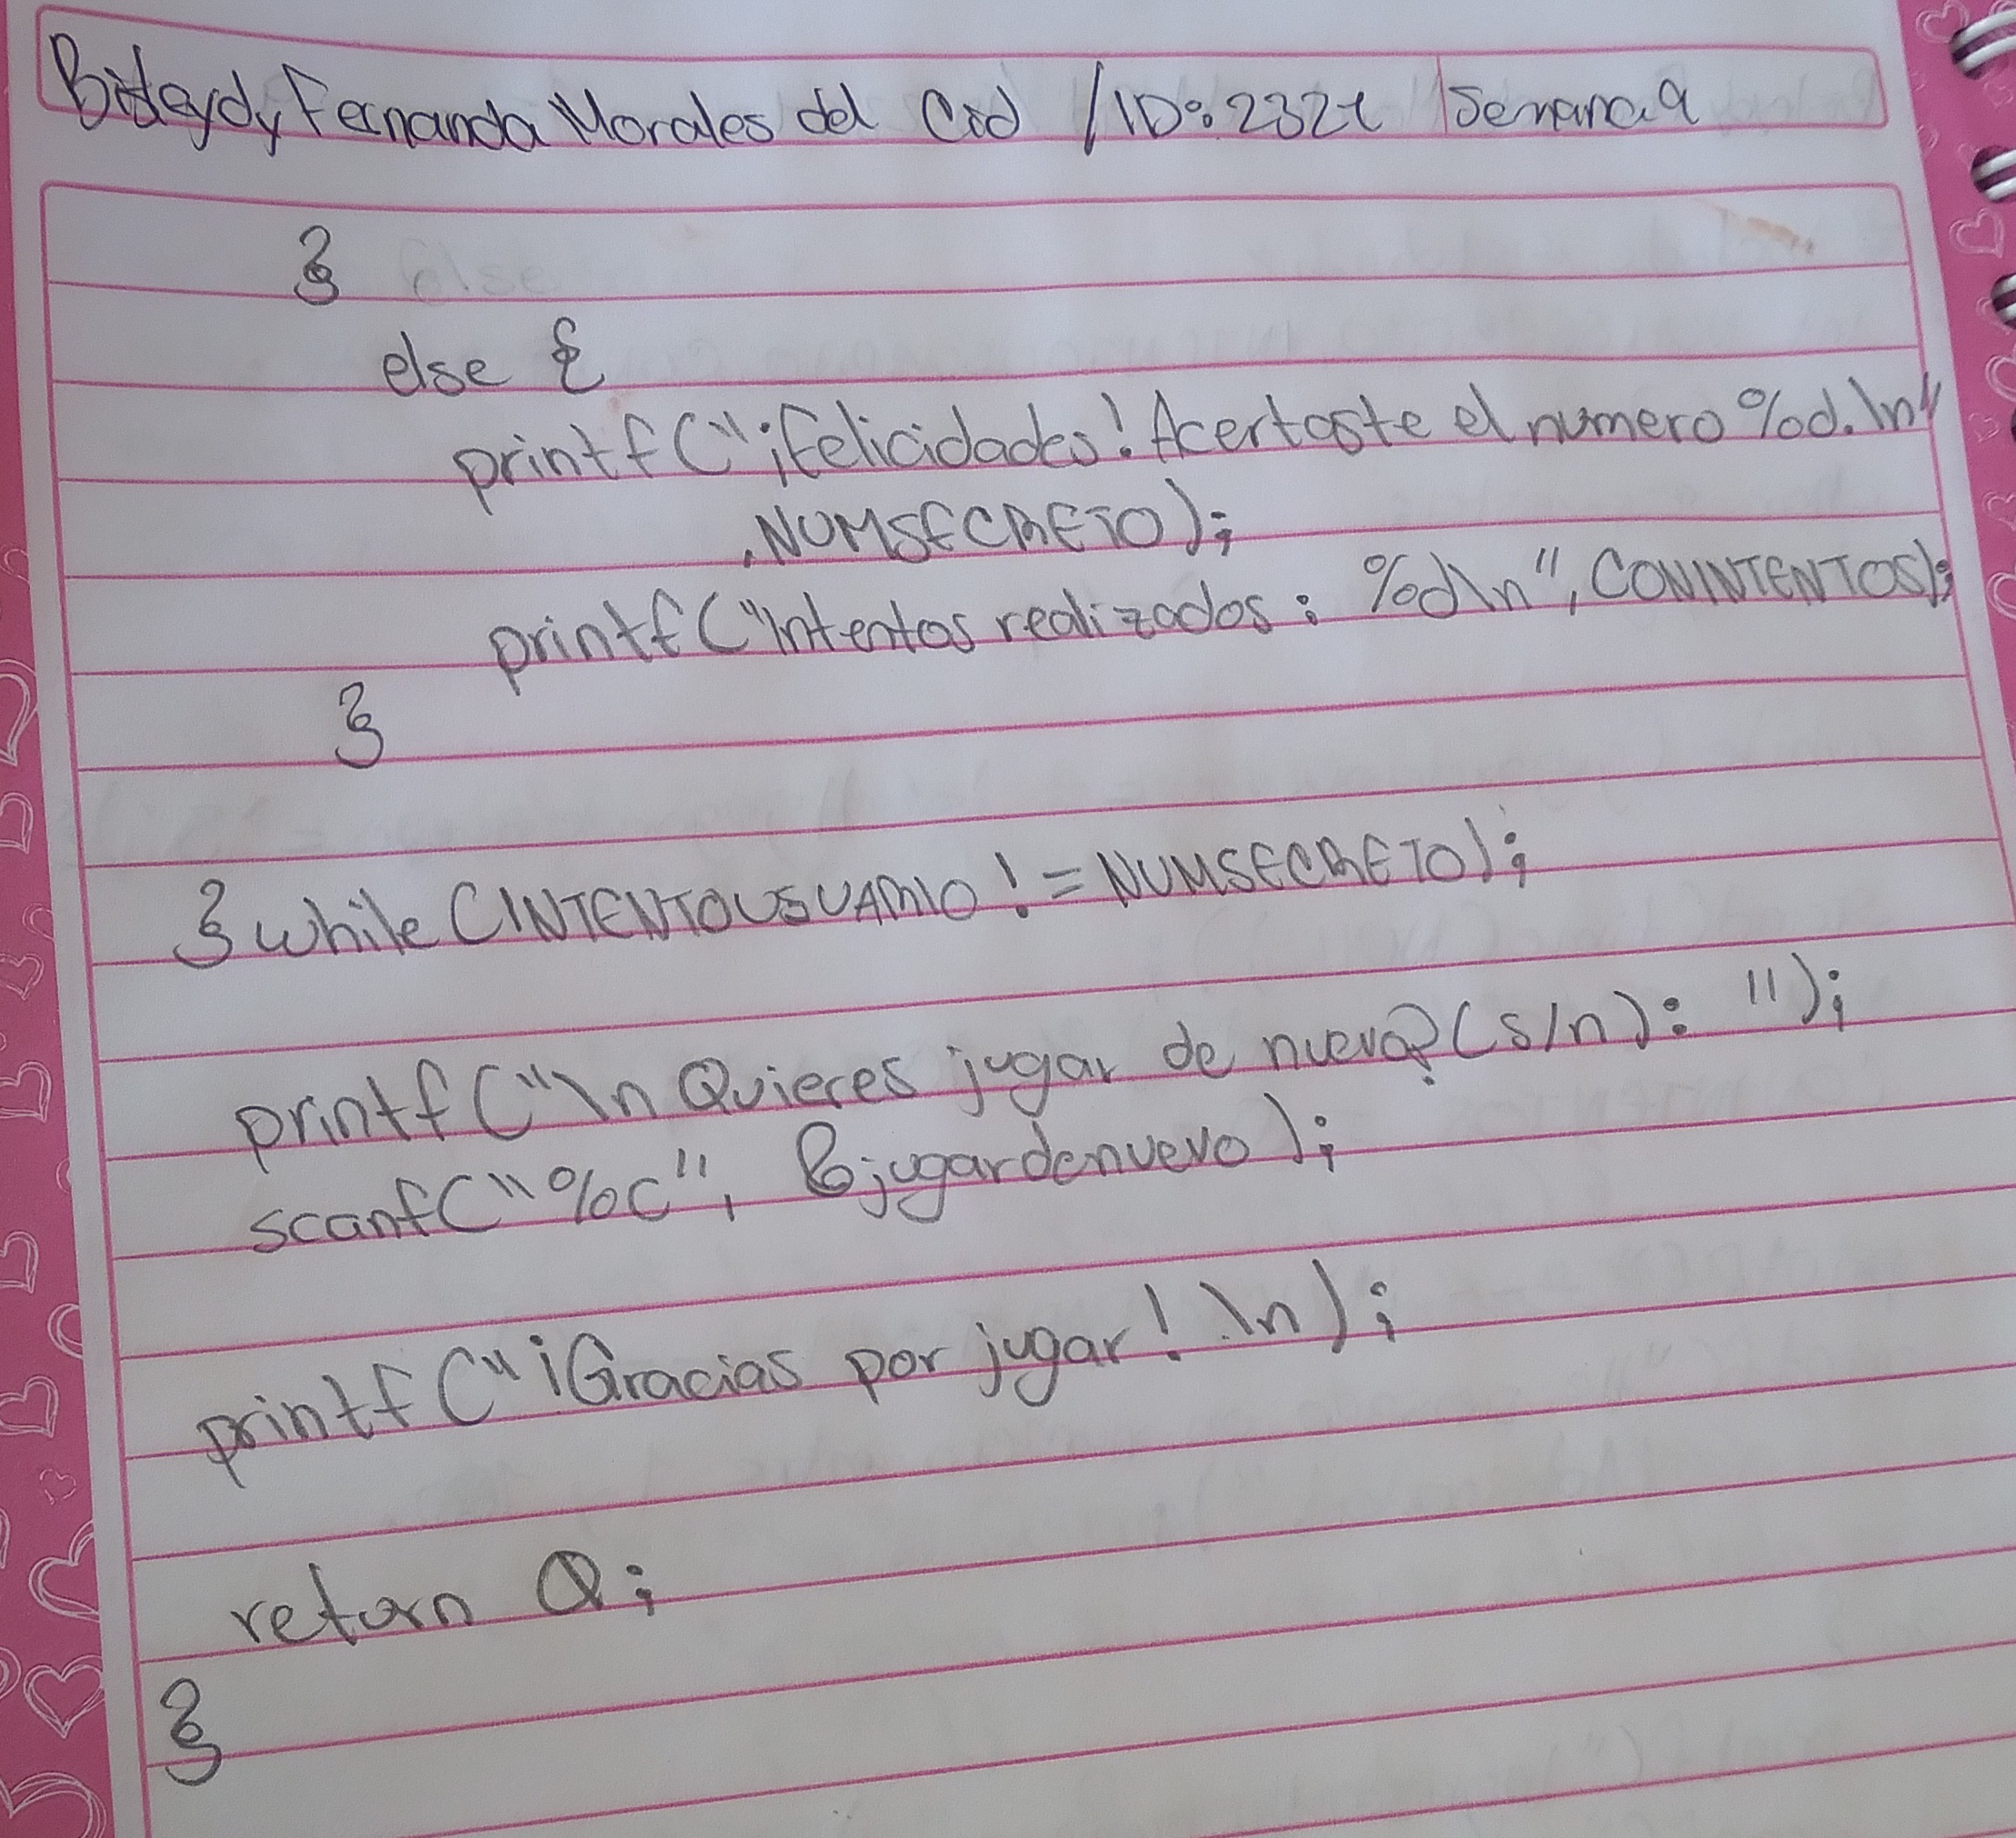 Fernanda Morales del Cid / ID: 2321 Semana 9
}
else {
printf("¡Felicidades! Acertaste el numero %d.\n"
,NUMSECRETO);
printf("Intentos realizados: %d\n", CONINTENTOS);
}
} while (INTENTOUSUARIO != NUMSECRETO);
printf("\n Quieres jugar de nuevo? (s/n): ");
scanf("%c", &jugardenuevo);
printf("¡Gracias por jugar! \n);
return 0;
}